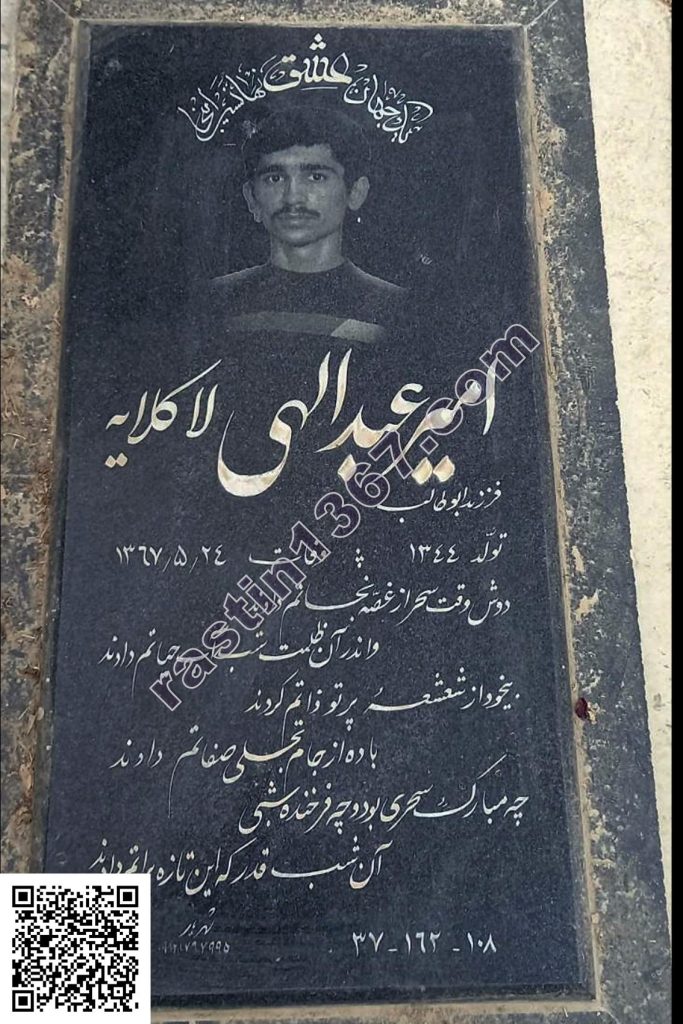 عشق
امیر عبدالهی لاکلایه
فرزند ابوطالب
تولد ۱۳۴۴ وفات ۱۳۶۷/۵/۲۴
دوش وقت سحر از غصه نجاتم
واندر آن ظلمت شب حیاتم دادند
بیخود از شعشعه پرتو ذاتم کردند
باده از جام تجلی صفاتم دادند
چه مبارک سحری بود و چه فرخنده شبی
آن شب قدر که این تازه براتم دادند
۳۷-۱۶۲-۱۰۸
rastin1367.com